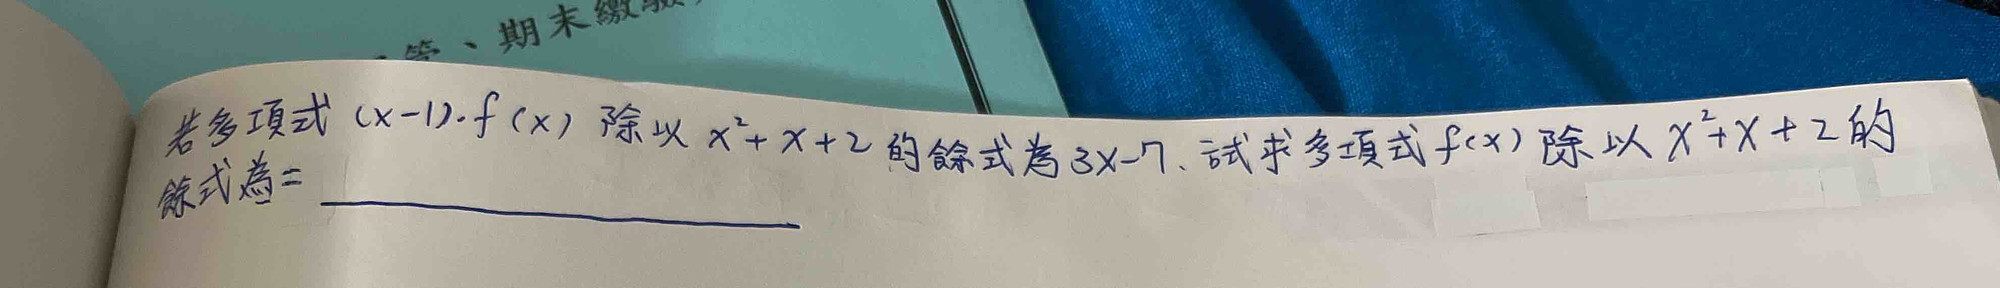 管、期末繳
若多項式 (x-1)·f(x) 除以 x²+x+2 的餘式為 3x-7、試求多項式 f(x) 除以 x²+x+2 的
餘式為=